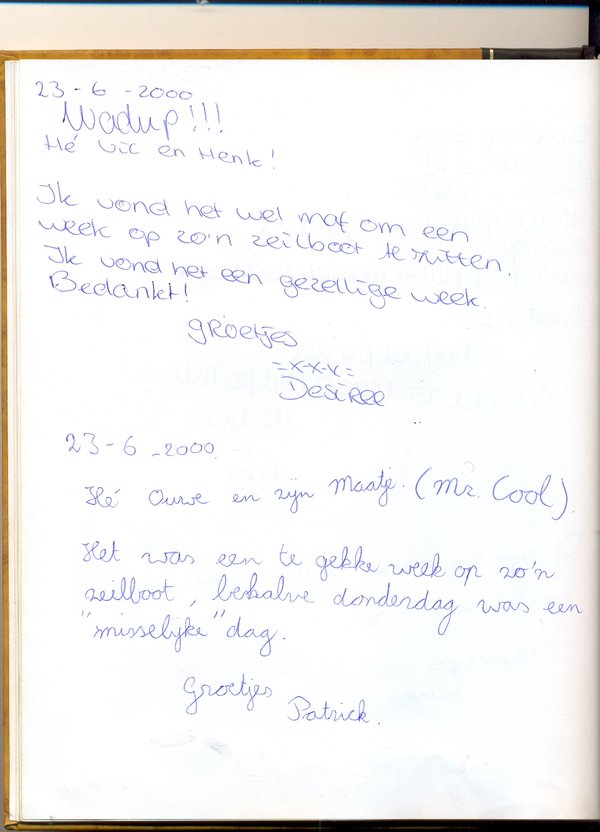 23-6-2000
Wadup!!!
Hé Vic en Henk!
Ik vond het wel maf om een
week op zo'n zeilboot te zitten.
Ik vond het een gezellige week.
Bedankt!
groetjes
=x-x-x=
Desiree
23-6-2000
Hé Ouwe en zijn Maatje. (Mr. Cool)
Het was een te gekke week op zo'n
zeilboot, behalve donderdag was een
"misselijke" dag.
Groetjes
Patrick.